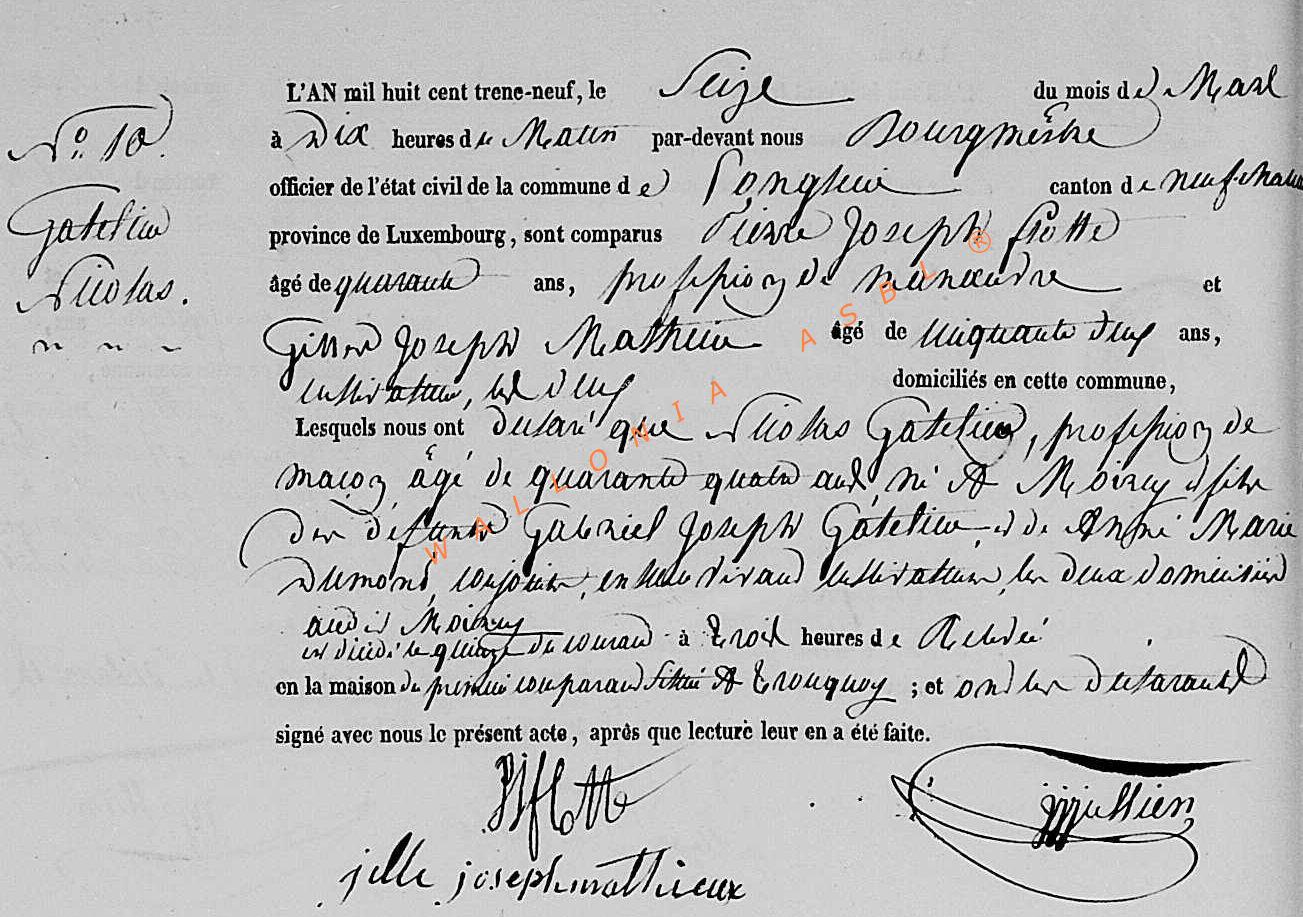 N° 10.
Gatelier
Nicolas.
L'AN mil huit cent trene-neuf, le Seize du mois de Mars
à Dix heures de Matin par-devant nous Bourgmestre
officier de l'état civil de la commune de Longlier canton de neufchateau
province de Luxembourg, sont comparus Pierre Joseph Flotte
âgé de quarante ans, profession de manœuvre et
Joseph Mathieu âgé de cinquante deux ans,
les deux domiciliés en cette commune,
Lesquels nous ont déclaré que Nicolas Gatelier, profession de
maçon âgé de quarante quatre ans, né à Moircy, fils
des défunts Gabriel Joseph Gatelier et de Anne Marie
Dumont, conjoints, en leur vivant cultivateurs, les deux domiciliés
audit Moircy
est décédé le quinze du courant à trois heures de Relevée
en la maison du premier comparant située à Tronquoy ; et ont les déclarants
signé avec nous le présent acte, après que lecture leur en a été faite.
PJ flotte
jjjullien
jille joseph mathieux
WALLONIA ASBL ®